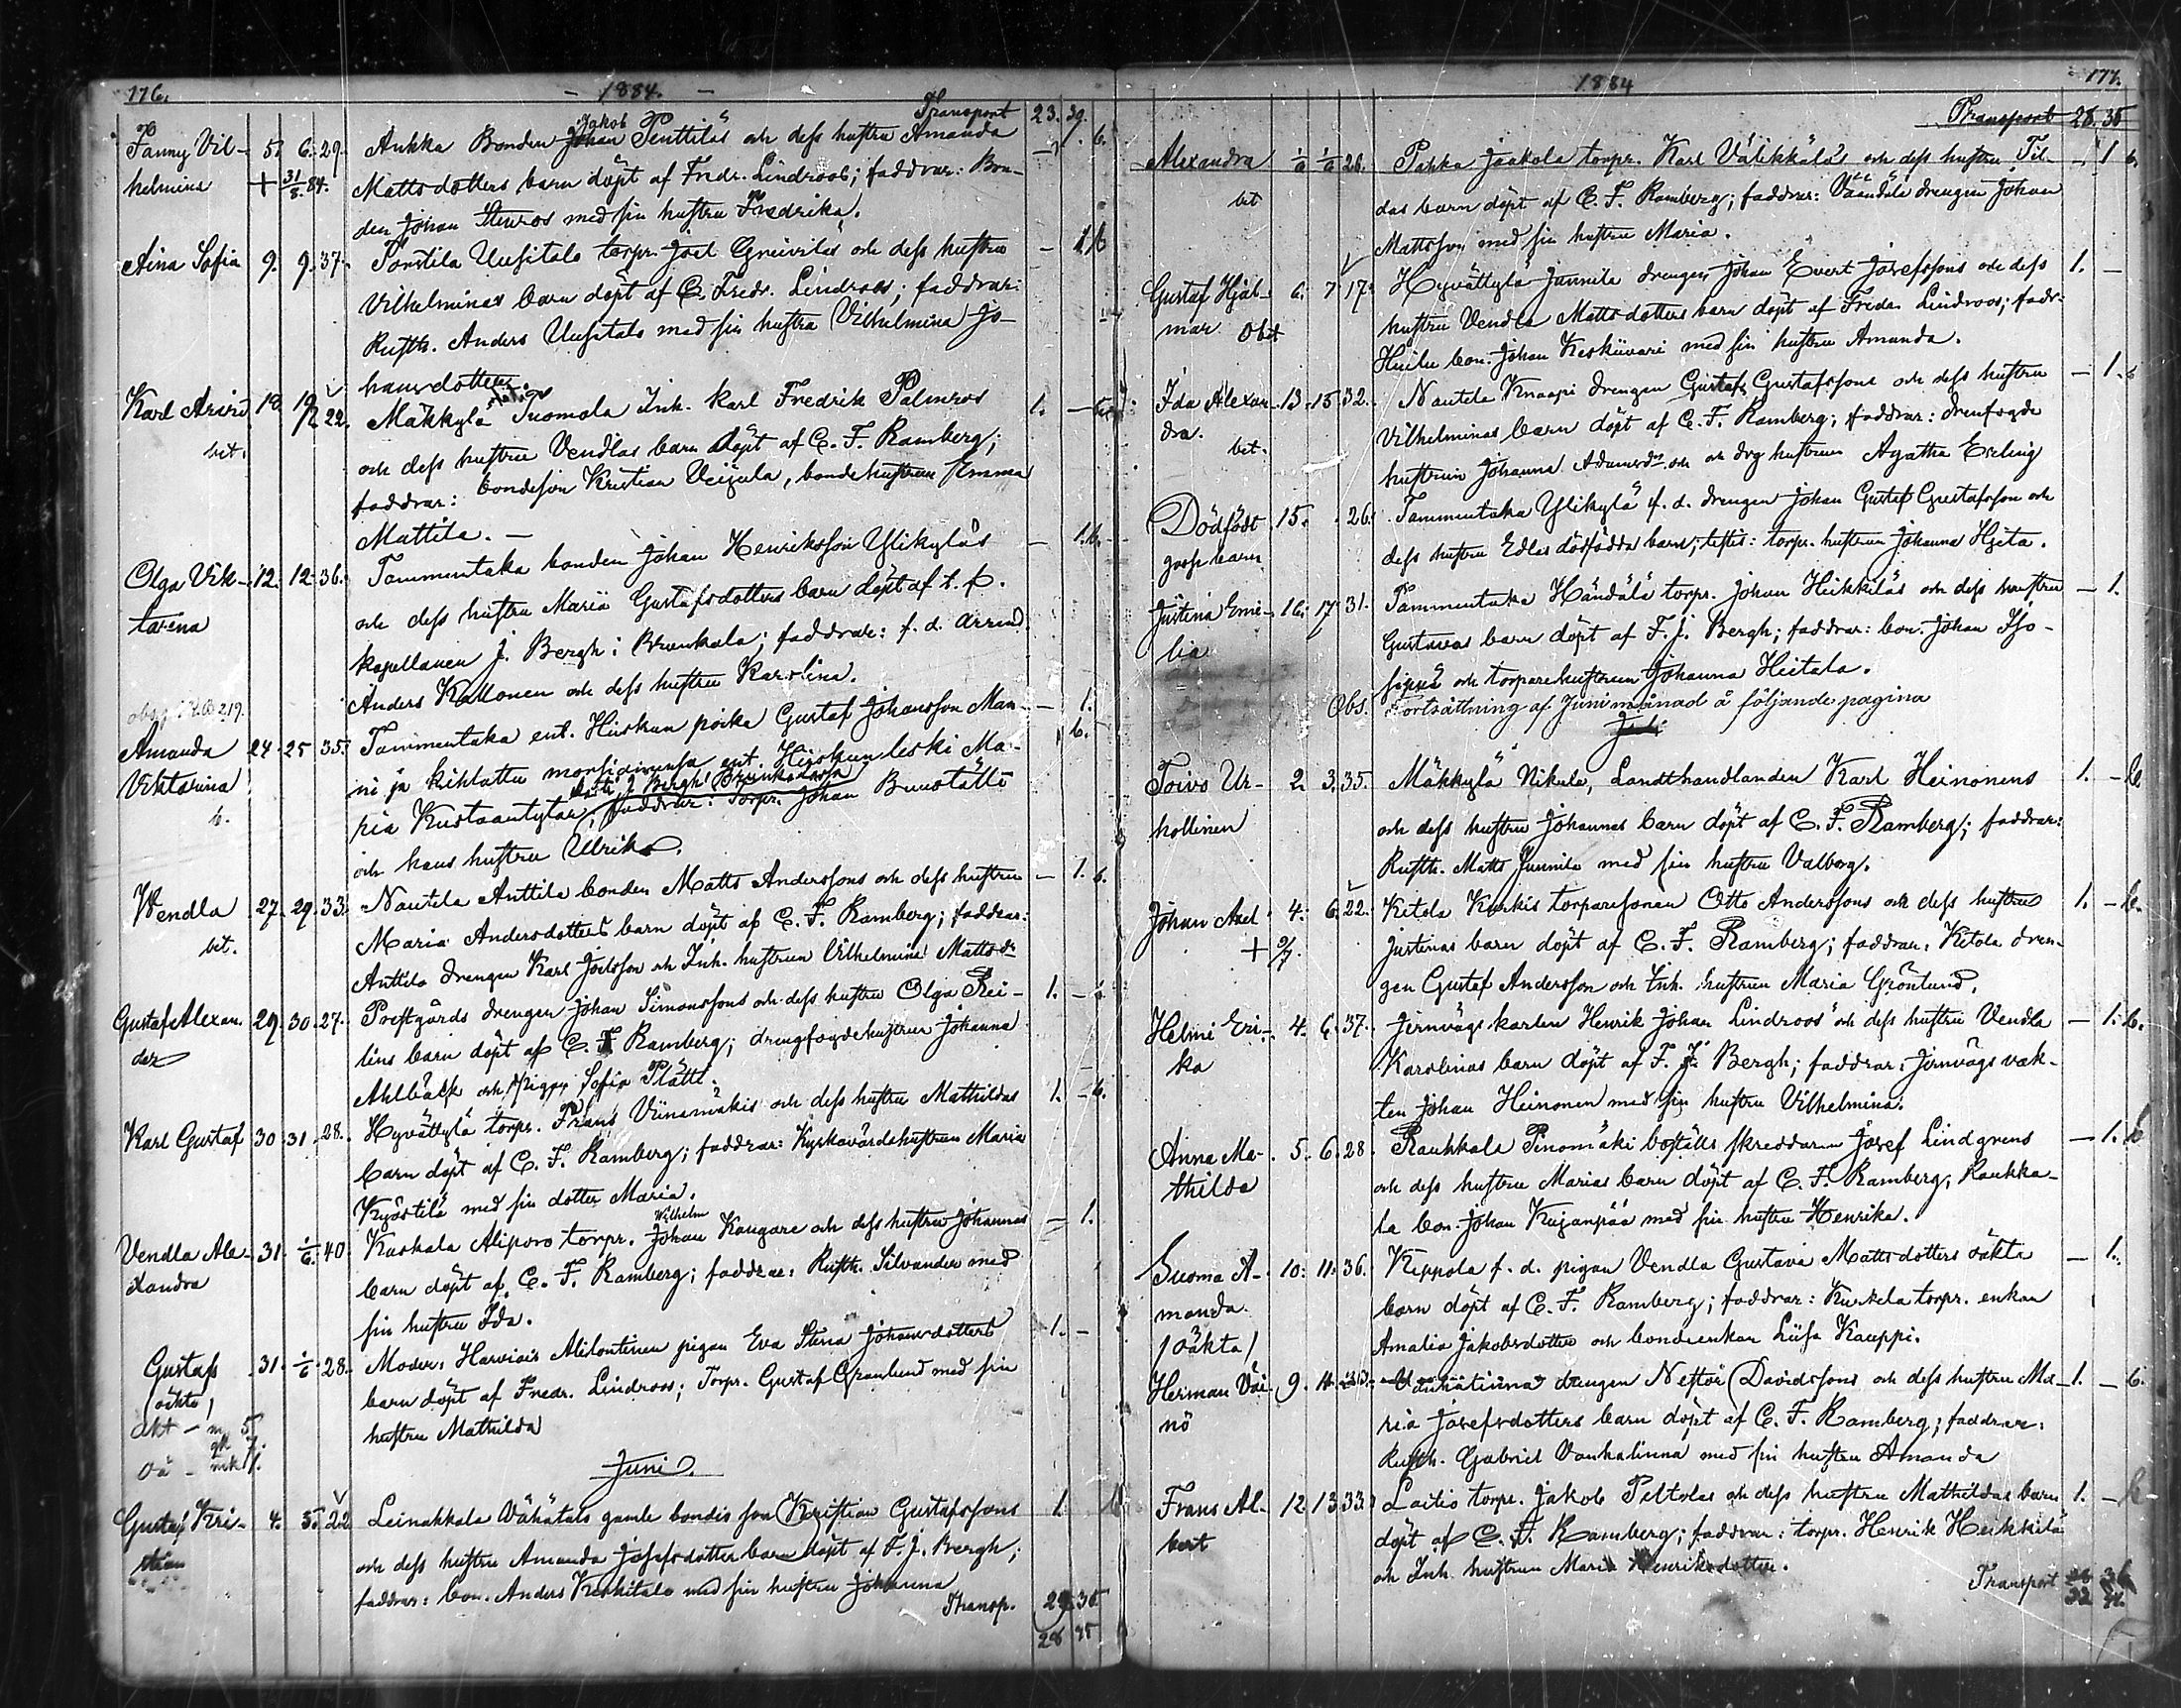 176.
- 1884. -
Transport 23. 39.
Fanny Vil- 5. 6. 29. Ankka Bonden Jakob Johan Penttilas och dess hustru Amanda - 1. b.
helmina + 31/8 84. Mattsdotters barn döpt af Fredr. Lindroos; faddrar: Bon-
den Johan Stenroos med sin hustru Fredrika.
Aina Sofia 9. 9. 37. Torstila Uusitalo torpr. Joel Grenvilas och dess hustru - 1. b
Vilhelminas barn döpt af C. Fredr. Lindroos; faddrar:
Rusth. Anders Uusitalo med sin hustru Vilhelmina Jo-
hansdotter.
Karl Arvid 18. 19. 22. Mäkkylä Tuomola Inh. Karl Fredrik Palmros 1. -
bet. och dess hustru Vendlas barn döpt af C. F. Ramberg;
faddrar: bondeson Kristian Veijula, bondehustrun Emma
Mattila. -
Olga Vik- 12. 12. 36. Tammentaka bonden Johan Henriksson Ylikyläs - 1. b.
torina och dess hustru Maria Gustafsdotters barn döpt af t. f.
kapellanen J. Bergh i Brunkala; faddrar: f. d. arrend.
Anders Kallonen och dess hustru Karolina.
219.
Amanda 24. 25. 35. Tammentaka ent. Hiiskun poika Gustaf Johansson Man- - 1.
Viktoriina ni ja kihlattu morsiamensa ent. Hiiskun leski Ma- b.
b. ria Kustaantytär, J. Bergh Brunkalassa faddrar: Torpr. Johan Brusstätte
och hans hustru Ulrika.
Wendla 27. 29. 33. Nautela Anttila bonden Matts Anderssons och dess hustru - 1. b.
bet. Maria Andersdotters barn döpt af C. F. Ramberg; faddrar:
Anttila drengen Karl Joelsson och Inh. hustrun Vilhelmina Mattsdr
Gustaf Alexan- 29. 30. 27. Prestgårds drengen Johan Simonssons och dess hustru Olga Rei- 1. -
der lins barn döpt af C. F. Ramberg; drengfogdehustrun Johanna
Ahlbäck och pigan Sofia Plätti.
Karl Gustaf 30. 31. 28. Hyvättylä torpr. Frans Viinamäkis och dess hustru Mathildas 1. - b.
barn döpt af C. F. Ramberg; faddrar: Kyrkovärdshustrun Maria
Kyöstilä med sin dotter Maria.
Vendla Ale- 31. 1/6. 40. Kaskala Aliporo torpr. Johan Wilhelm Kangare och dess hustru Johannas - 1.
xandra barn döpt af C. F. Ramberg; faddrar: Rusth. Silvander med
sin hustru Ida.
Gustaf 31. 1/6. 28. Moder: Harviais Alilontinen pigan Eva Stina Johansdotters 1. -
(oäkta) barn döpt af Fredr. Lindroos; Torpr. Gustaf Granlund med sin
äkt - m 5. hustru Mathilda
oä -
Juni.
Gustaf Kri- 4. 5. 22. Leinakkala Vähätalo gamle bondes son Kristian Gustafssons 1.
stian och dess hustru Amanda Josefsdotter barn döpt af F. J. Bergh;
faddrar: bon. Anders Keskitalo med sin hustru Johanna
Transp. 29. 35
28 35
1884
177.
Transport 28. 35
Alexandra 1/6 1/6 26. Pakka Jaakola torpr. Karl Välikkäläs och dess hustru Til- - 1 b.
bet das barn döpt af C. F. Ramberg; faddrar: Väändälä drengen Johan
Mattsson med sin hustru Maria.
Gustaf Hjal- 6. 7. 17. Hyvättylä Junnila drengen Johan Evert Josefssons och dess 1. -
mar Obet hustru Vendla Mattsdotters barn döpt af Fredr. Lindroos; fadr:
bon. Johan Keskivari med sin hustru Amanda.
Ida Alexan- 13. 15. 32. Nautela Knaapi drengen Gustaf Gustafssons och dess hustru - 1.
dra. Vilhelminas barn döpt af C. F. Ramberg; faddrar: drenfogde
bet. hustrun Johanna Adamsdr och drg hustrun Agatha Erling
Dödfödt 15. 26. Tammentaka Ylikylä f. d. drengen Johan Gustaf Gustafsson och
gosse barn dess hustru Edlas dödfödda barn; testis: torpr. hustrun Johanna Hjeta.
Justina Emi- 16. 17. 31. Tammentaka Händälä torpr. Johan Heikkiläs och dess hustru - 1.
lia Gustavas barn döpt af F. J. Bergh; faddrar: bon. Johan Iso-
sippa och torparehustrun Johanna Hietala.
Obs. Fortsättning af Juni månad å följande pagina
Juli
Toivo Ur- 2. 3. 35. Mäkkylä Nikula, Landthandlanden Karl Heinonens 1. - b
hollinen och dess hustru Johannas barn döpt af C. F. Ramberg; faddrar:
Rusth. Matts Junnila med sin hustru Valborg.
Johan Axel 4. 6. 22. Kitola Kurkis torparesonen Otto Anderssons och dess hustru 1. - b.
+ 9/7. Justinas barn döpt af C. F. Ramberg; faddrar: Kitola dren-
gen Gustaf Andersson och Inh. hustrun Maria Grönlund.
Helmi Eri- 4. 6. 37. Jernvägs karlen Henrik Johan Lindroos och dess hustru Vendla - 1. b.
ka Karolinas barn döpt af F. J. Bergh; faddrar: Jernvägs vak-
ten Johan Heinonen med sin hustru Vilhelmina.
Anna Ma- 5. 6. 28. Raukkala Pinomäki boställs skreddaren Josef Lindgrens - 1. b
thilda och dess hustru Marias barn döpt af C. F. Ramberg; Raukka-
la bon. Johan Kujanpää med sin hustru Henrika.
Suoma A- 10. 11. 36. Keppola f. d. pigan Vendla Gustava Mattsdotters oäkta - 1.
manda barn döpt af C. F. Ramberg; faddrar: Kurkela torpr. enkan
/oäkta/ Amalia Jakobsdotter och bondeenkan Liisa Kauppi.
Herman Väi- 9. 11. Vanhalinna drengen Nestor Davidssons och dess hustru Ma- 1. - b.
nö ria Josefsdotters barn döpt af C. F. Ramberg; faddrar:
Rusth. Gabriel Vanhalinna med sin hustru Amanda
Frans Al- 12. 13. 33. Laitio torpr. Jakob Peltolas och dess hustru Mathildas barn 1. - b
bert döpt af C. F. Ramberg; faddrar: torpr. Henrik Heikkilä
och Inh. hustrun Maria Henriksdotter.
Transport 26 36
32